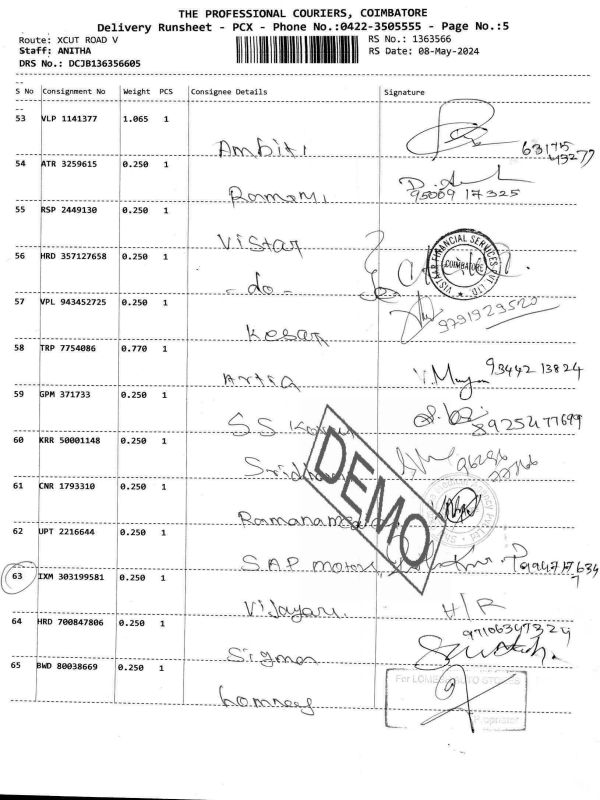 THE PROFESSIONAL COURIERS, COIMBATORE
Delivery Runsheet - PCX - Phone No.:0422-3505555 - Page No.:5
Route: XCUT ROAD V RS No.: 1363566
Staff: ANITHA RS Date: 08-May-2024
DRS No.: DCJB136356605
S No Consignment No Weight PCS Consignee Details Signature
53 VLP 1141377 1.065 1
Ambiti 63175
43277
54 ATR 3259615 0.250 1
Ramani 95009 17325
55 RSP 2449130 0.250 1
Vistar
56 HRD 357127658 0.250 1
VISTAAR FINANCIAL SERVICES PVT LTD
COIMBATORE
- do -
57 VPL 943452725 0.250 1
Kesar 9791929520
58 TRP 7754086 0.770 1
Artia 93442 13824
59 GPM 371733 0.250 1
S S 8925477699
60 KRR 50001148 0.250 1
61 CNR 1793310 0.250 1
62 UPT 2216644 0.250 1
S.A.P motors
63 IXM 303199581 0.250 1
Vijayari H/R
64 HRD 700847806 0.250 1
Sigma 97106347324
65 BWD 80038669 0.250 1
For AUTO STORES
Proprietor
DEMO